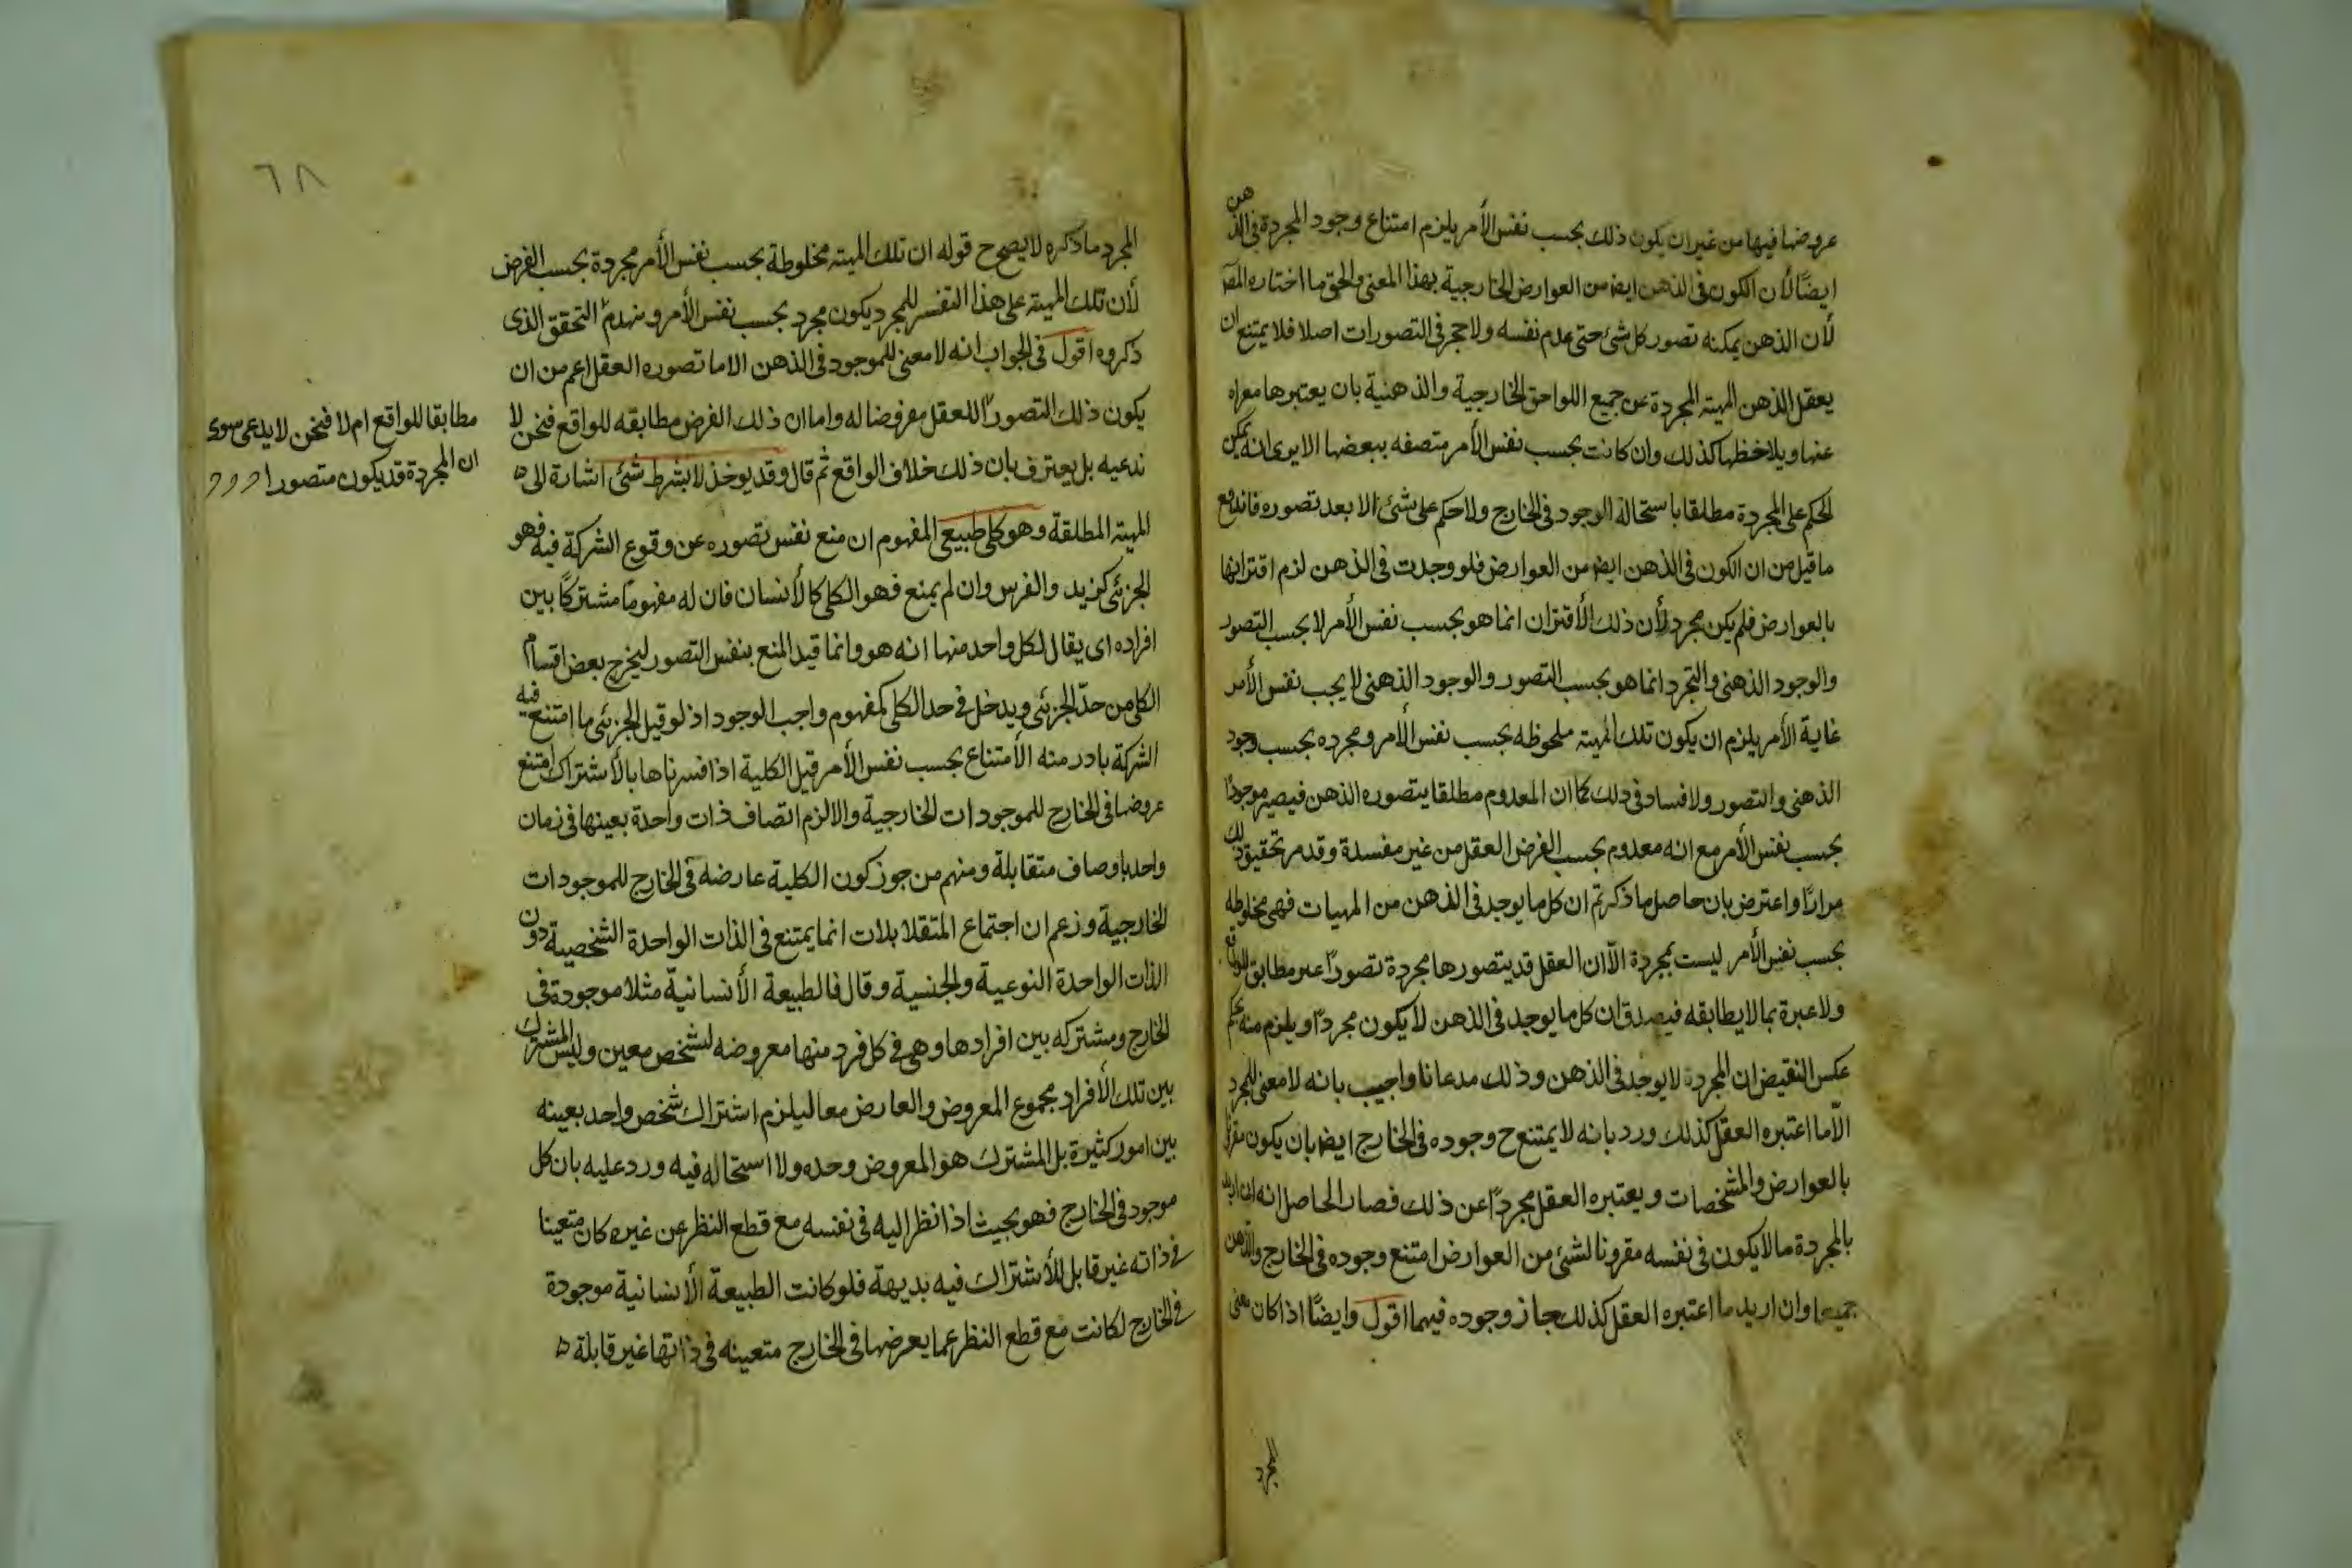 عروضها فيها من غير ان يكون ذلك بحسب نفس الأمر يلزم امتناع وجود المجردة فى الذهن
ايضًا لأن الكون فى الذهن ايض من العوارض الخارجية بهذا المعنى والحق ما اختاره المص
لأن الذهن يمكنه تصور كل شئ حتى عدم نفسه ولا حجر فى التصورات اصلا فلا يمتنع ان
يعقل الذهن المهية المجردة عن جميع اللواحق الخارجية والذهنية بان يعتبرها معراه
عنها ويلاحظها كذلك وان كانت بحسب نفس الأمر متصفه ببعضها الا يرى انه يمكن
الحكم على المجردة مطلقا باستحالة الوجود فى الخارج ولا حكم على شئ الا بعد تصوره فاندفع
ما قيل من ان الكون فى الذهن ايض من العوارض فلو وجدت فى الذهن لزم اقترانها
بالعوارض فلم يكن مجرد لأن ذلك الأقتران انما هو بحسب نفس الأمر لا بحسب التصور
والوجود الذهنى والتجرد انما هو بحسب التصور والوجود الذهنى لا يجب نفس الأمر
غاية الأمر يلزم ان يكون تلك المهية ملحوظه بحسب نفس الأمر ومجرده بحسب وجود
الذهنى والتصور ولا فساد فى ذلك كما ان المعدوم مطلقا يتصوره الذهن فيصير موجودًا
بحسب نفس الأمر مع انه معدوم بحسب الفرض العقل من غير مفسدة وقد مر تحقيق ذلك
مرارًا واعترض بان حاصل ما ذكرتم ان كل ما يوجد فى الذهن من المهيات فهى مخلوطه
بحسب نفس الأمر ليست بمجردة الّا ان العقل قد يتصورها مجردة تصورًا غير مطابق للواقع
ولا عبرة بما لا يطابقه فيصدق ان كل ما يوجد فى الذهن لا يكون مجردًا ويلزم منه بحكم
عكس النقيض ان المجردة لا يوجد فى الذهن وذلك مدعانا واجيب بانه لا معنى للمجرد
الّا ما اعتبره العقل كذلك ورد بانه لا يمتنع ح وجوده فى الخارج ايض بان يكون مقرنا
بالعوارض والمشخصات ويعتبره العقل مجردًا عن ذلك فصار الحاصل انه ان اريد
بالمجردة ما لا يكون فى نفسه مقرونا لشئ من العوارض امتنع وجوده فى الخارج والذهن
جميعا وان اريد ما اعتبره العقل كذلك جاز وجوده فيهما اقول وايضًا اذا كان معنى
المجرد
٦٨
المجرد ما ذكره لا يصح ح قوله ان تلك المهية مخلوطة بحسب نفس الأمر مجردة بحسب الفرض
لأن تلك المهية على هذا التفسر للمجرد يكون مجرد بحسب نفس الأمر وينهدم التحقق الذى
ذكروه اقول فى الجواب انه لا معنى للموجود فى الذهن الا ما تصوره العقل اعم من ان
يكون ذلك التصور اللعقل مفروضا له واما ان ذلك الفرض مطابقه للواقع فنحن لا
ندعيه بل يعترف بان ذلك خلاف الواقع ثم قال وقد يوخذ لا بشرط شئ اشارة الى
المهية المطلقة وهو كلى طبيعى المفهوم ان منع نفس تصوره عن وقوع الشركة فيه فهو
الجزئى كزيد والفرس وان لم يمنع فهو الكلى كالأنسان فان له مفهومًا مشتركًا بين
افراده اى يقال لكل واحد منها انه هو وانما قيد المنع بنفس التصور ليخرج بعض اقسام
الكلى من حدّ الجزئى ويدخل فى حد الكلى كمفهوم واجب الوجود اذ لو قيل الجزئى ما امتنع فيه
الشركة بادر منه الأمتناع بحسب نفس الأمر قيل الكلية اذا فسرناها بالأشتراك امتنع
عروضها فى الخارج للموجودات الخارجية والا لزم اتصاف ذات واحدة بعينها فى زمان
واحد باوصاف متقابلة ومنهم من جوز كون الكلية عارضه فى الخارج للموجودات
الخارجية وزعم ان اجتماع المتقلابلات انما يمتنع فى الذات الواحدة الشخصية دون
الذات الواحدة النوعية والجنسية وقال فالطبيعة الأنسانية مثلا موجودة فى
الخارج ومشتركه بين افرادها وهى فى كل فرد منها معروضه لشخص معين وليس المشترك
بين تلك الأفراد مجموع المعروض والعارض معا ليلزم اشتراك شخص واحد بعينه
بين امور كثيرة بل المشترك هو المعروض وحده ولا استحاله فيه ورد عليه بان كل
موجود فى الخارج فهو بحيث اذا نظر اليه فى نفسه مع قطع النظر عن غيره كان متعينا
فى ذاته غير قابل للأشتراك فيه بديهة فلو كانت الطبيعة الأنسانية موجودة
فى الخارج لكانت مع قطع النظر عما يعرضها فى الخارج متعينه فى ذاتها غير قابلة
مطابقا للواقع ام لا فنحن لا يدعى سوى
ان المجردة قد يكون متصورا